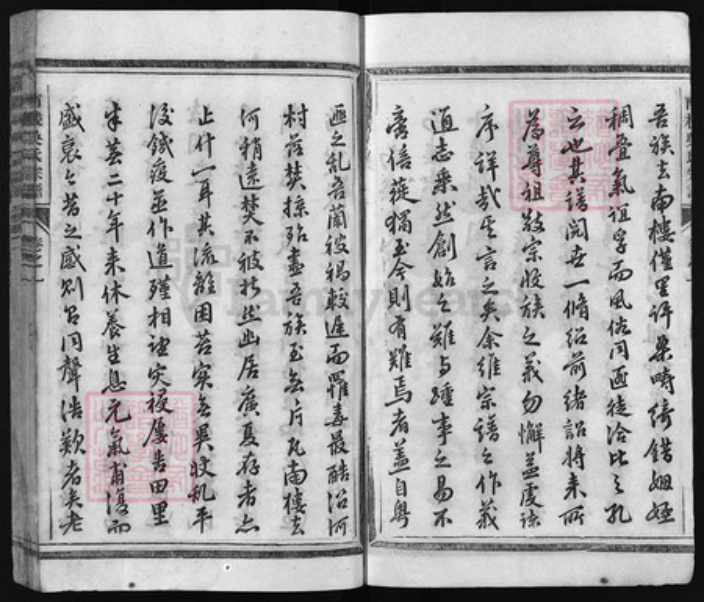 吾族去南樓僅里許桑疇綺錯姻婭
稠疊氣誼孚而風俗同函徒洽比之孔
云也其譜閱世一脩紹前緒詔將来所
為尊祖敬宗收族之義勿懈益虔
序詳哉其言之矣余維宗譜之作義
通志乗然創始之難与踵事之易不
啻倍蓰獨至今則有難焉者蓋自粤
匪之乱吾蘭被禍較遲而罹毒最酷沿河
村落焚掠殆盡吾族至無片瓦南樓去
河稍遠焚不被拆然幽居廣夏存者亦
止什一耳其流離困苦實無異收乱平
後鋮疫並作道殣相望灾祲屡告田里
半蕪二十年来休養生息元氣甫復而
盛衰今昔之感則召同聲浩歎者矣老